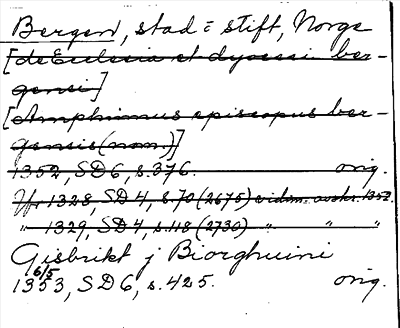 Bergen, stad = stift, Norge
[de Ecclesia et dyocesi ber-
gensi]
[Arnphinnus episcopus ber-
gensis (nom.)]
1352, SD 6, s. 376. orig.
Jfr 1328, SD 4, s. 70 (2675) vidim. avskr. 1352.
" 1329, SD 4, s. 118 (2730) " " "
Gisbrikt j Biorghuini
6/5
1353, SD 6, s. 425. orig.